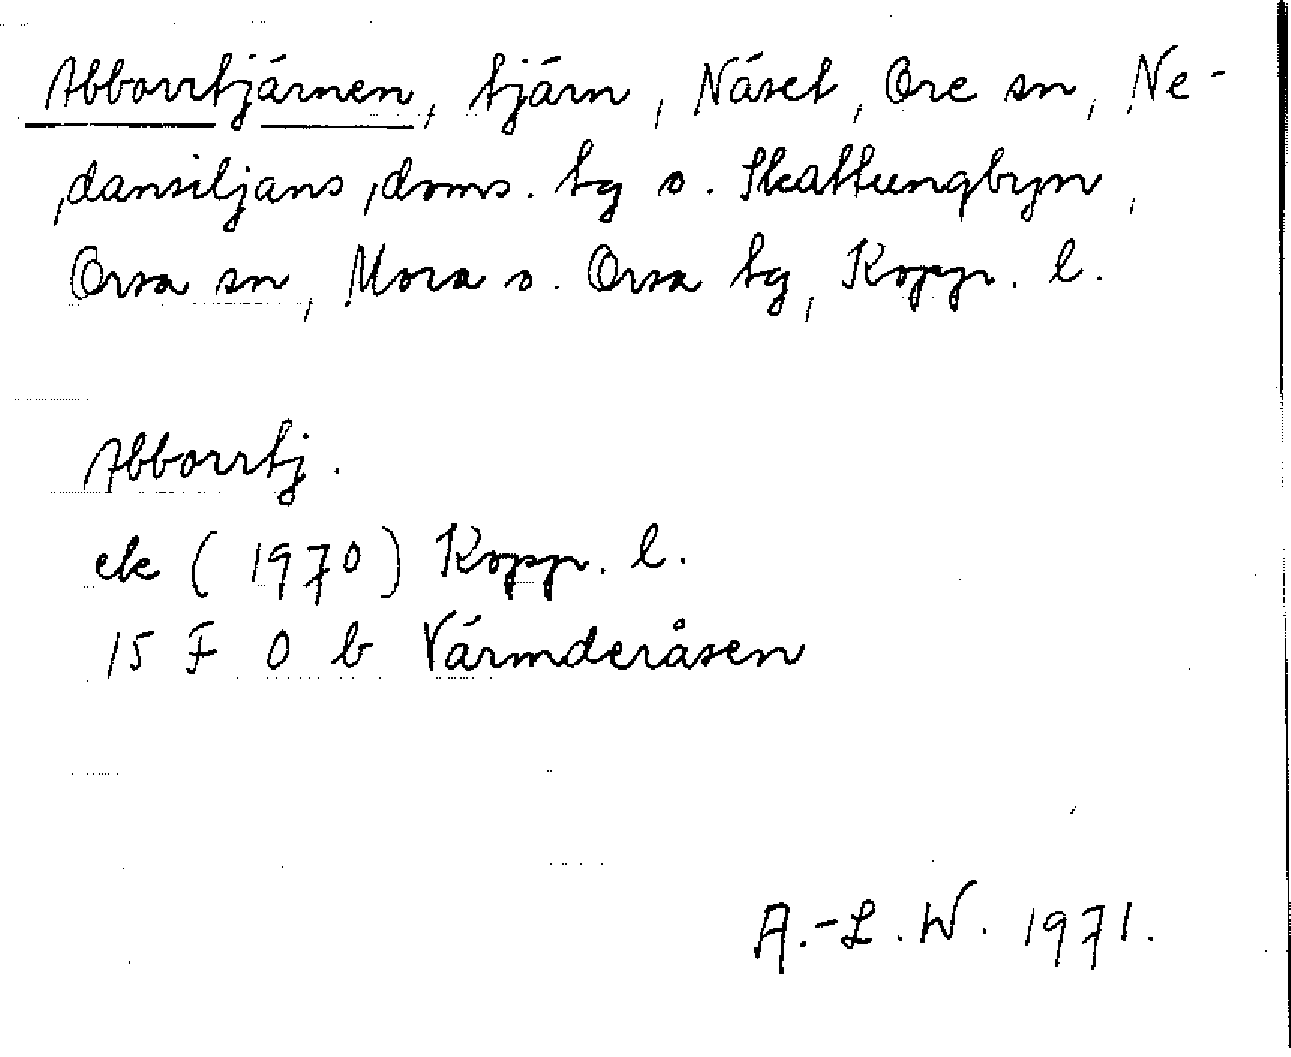 Abborrtjärnen, tjärn, Näset, Ore sn, Ne-
dansiljans doms. tg o. Skattungbyn,
Orsa sn, Mora o. Orsa tg, Kopp. l.
Abborrtj.
ek (1970) Kopp. l.
15 F 0 b Värmderåsen
A.-L. W. 1971.